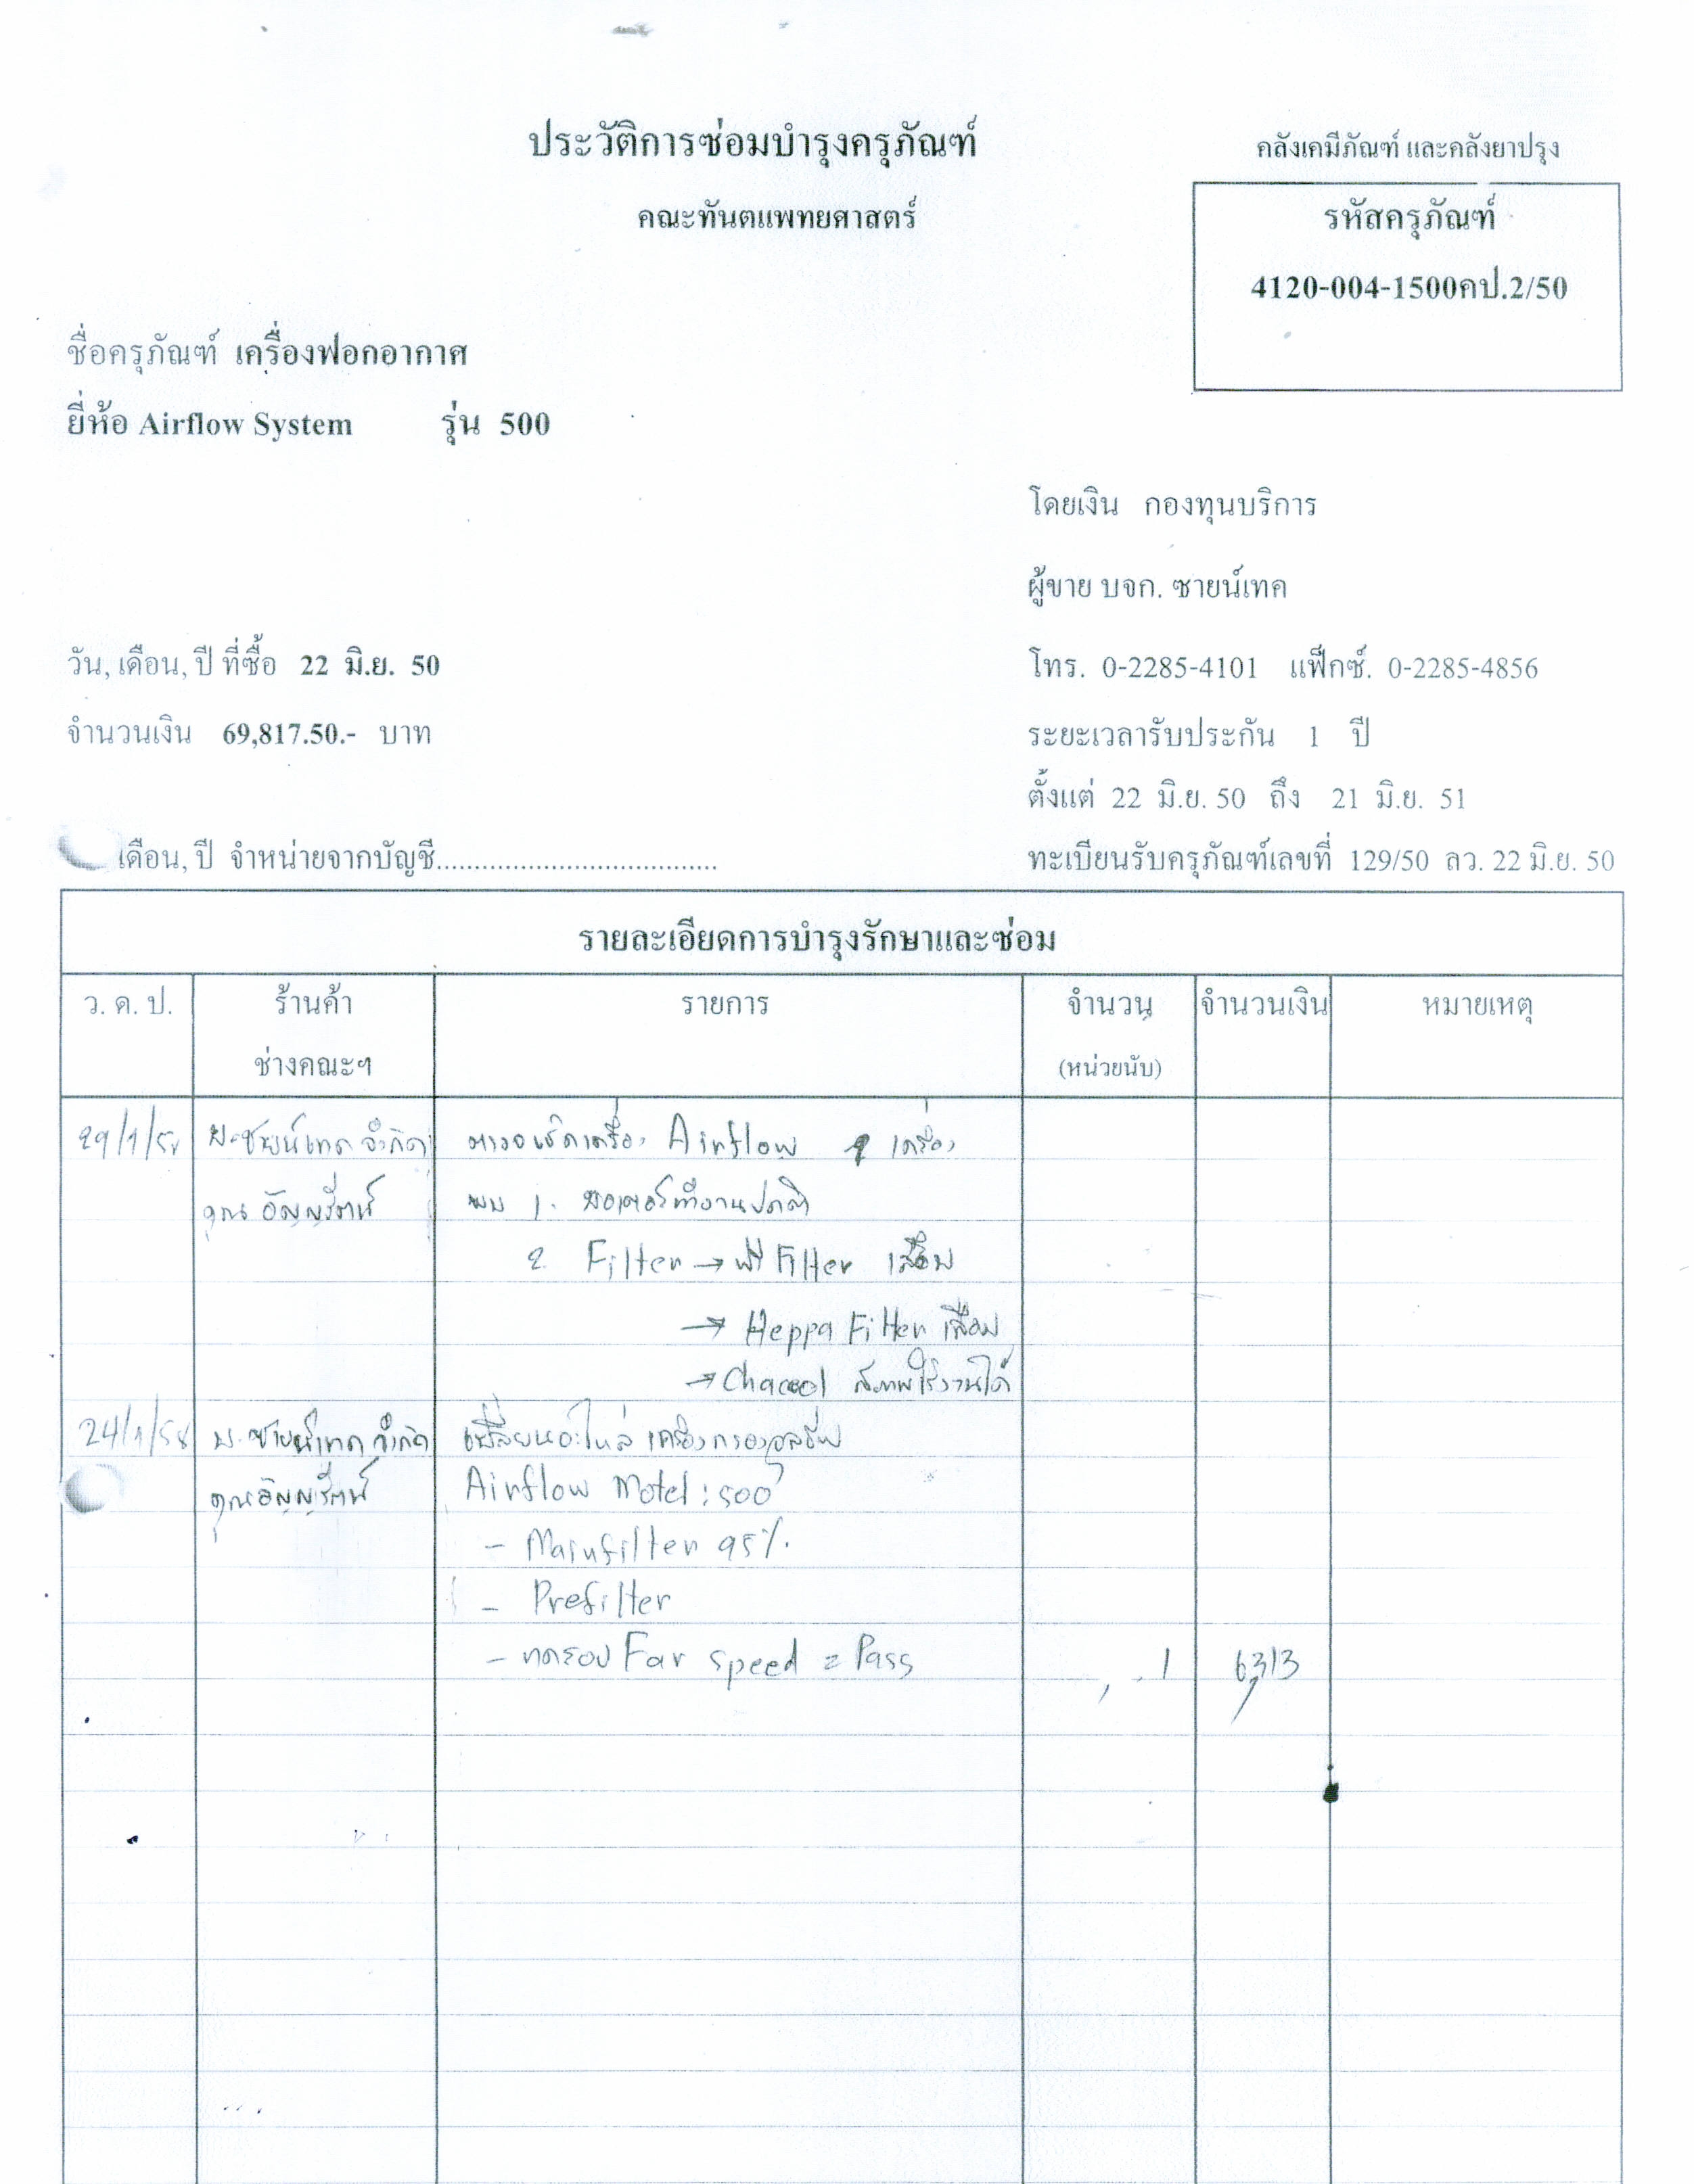 ประวัติการซ่อมบำรุงครุภัณฑ์
คลังเคมีภัณฑ์ และคลังยาปรุง
คณะทันตแพทยศาสตร์
รหัสครุภัณฑ์
4120-004-1500คป.2/50
ชื่อครุภัณฑ์ เครื่องฟอกอากาศ
ยี่ห้อ Airflow System รุ่น 500
โดยเงิน กองทุนบริการ
ผู้ขาย บจก. ซายน์เทค
วัน, เดือน, ปี ที่ซื้อ 22 มิ.ย. 50
โทร. 0-2285-4101 แฟ็กซ์. 0-2285-4856
จำนวนเงิน 69,817.50.- บาท
ระยะเวลารับประกัน 1 ปี
ตั้งแต่ 22 มิ.ย. 50 ถึง 21 มิ.ย. 51
เดือน, ปี จำหน่ายจากบัญชี.....................................
ทะเบียนรับครุภัณฑ์เลขที่ 129/50 ลว. 22 มิ.ย. 50
รายละเอียดการบำรุงรักษาและซ่อม
ว. ด. ป. ร้านค้า รายการ จำนวน จำนวนเงิน หมายเหตุ
ช่างคณะฯ (หน่วยนับ)
บ.ซายน์เทค จำกัด ตรวจเช็คเครื่อง Airflow เครื่อง
คุณ อัญญรัตน์ พบ 1. มอเตอร์ทำงานปกติ
2. Filter → Filter เสื่อม
→ Heppa Filter เสื่อม
→ Chacol สภาพใช้งานได้
บ.ซายน์เทค จำกัด เปลี่ยนอะไหล่ เครื่องกรองจุลชีพ
คุณอัญญรัตน์ Airflow Motel : 500
- Mainfilter 95%
- Prefilter
- ทดสอบ Fan speed = Pass 1 6,313